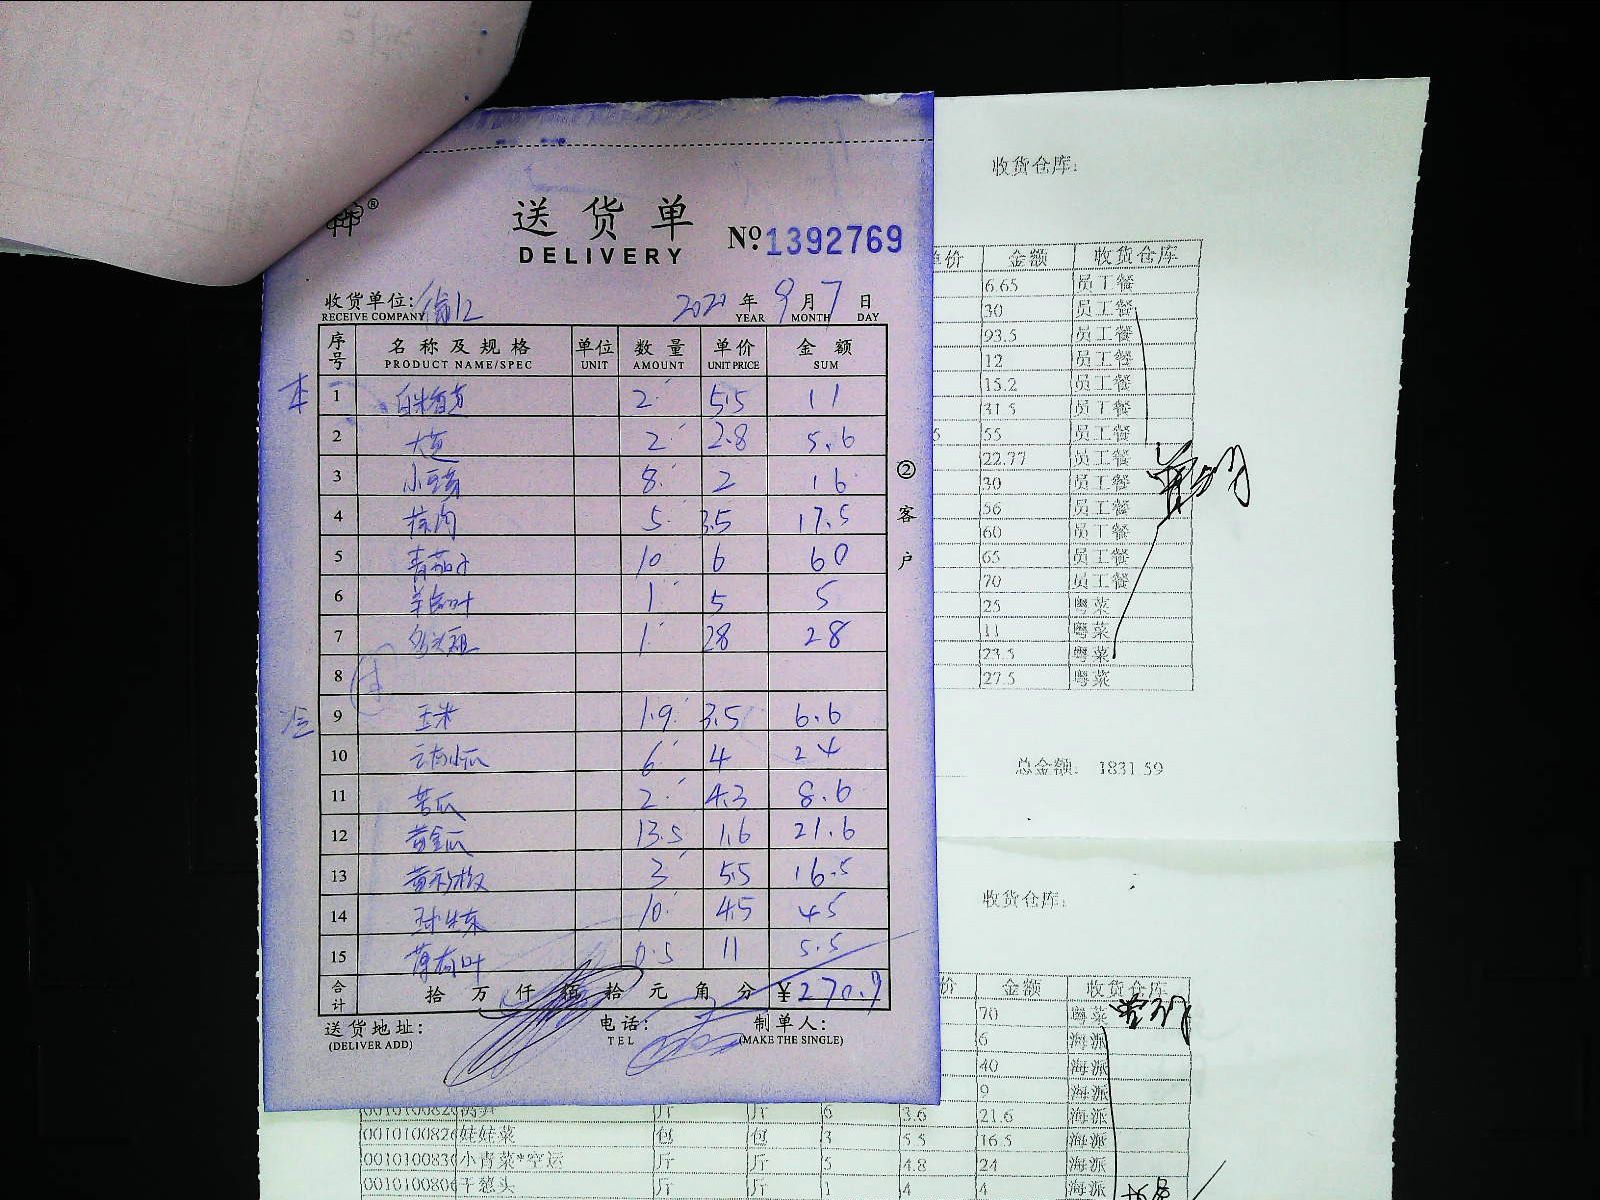 送货单
DELIVERY
№ 1392769
收货单位:
RECEIVE COMPANY
年 9 月 7 日
YEAR MONTH DAY
序号 名称及规格 单位 数量 单价 金额
PRODUCT NAME/SPEC UNIT AMOUNT UNIT PRICE SUM
本
1 2 5.5 11
2 大葱 2 2.8 5.6
3 8 2 16
4 5 3.5 17.5
5 青茄子 10 6 60
6 1 5 5
7 1 28 28
8
冷
9 玉米 1.9 3.5 6.6
10 云南小瓜 6 4 24
11 苦瓜 2 4.3 8.6
12 黄金瓜 13.5 1.6 21.6
13 黄彩椒 3 5.5 16.5
14 球生菜 10 4.5 45
15 薄荷叶 0.5 11 5.5
合计 拾 万 仟 佰 拾 元 角 分 ¥270.9
送货地址:
(DELIVER ADD)
电话:
TEL
制单人:
(MAKE THE SINGLE)
②客户
收货仓库:
价 金额 收货仓库
6.65 员工餐
30 员工餐
93.5 员工餐
12 员工餐
15.2 员工餐
31.5 员工餐
5 55 员工餐
22.77 员工餐
30 员工餐
56 员工餐
60 员工餐
65 员工餐
70 员工餐
25 粤菜
11 粤菜
23.5 粤菜
27.5 粤菜
总金额: 1831.59
收货仓库:
价 金额 收货仓库
70 粤菜
6 海派
40 海派
9 海派
斤 斤 6 3.6 21.6 海派
0010100826 娃娃菜 包 包 3 5.5 16.5 海派
0010100830 小青菜*空运 斤 斤 5 4.8 24 海派
0010100806 干葱头 斤 斤 1 4 4 海派